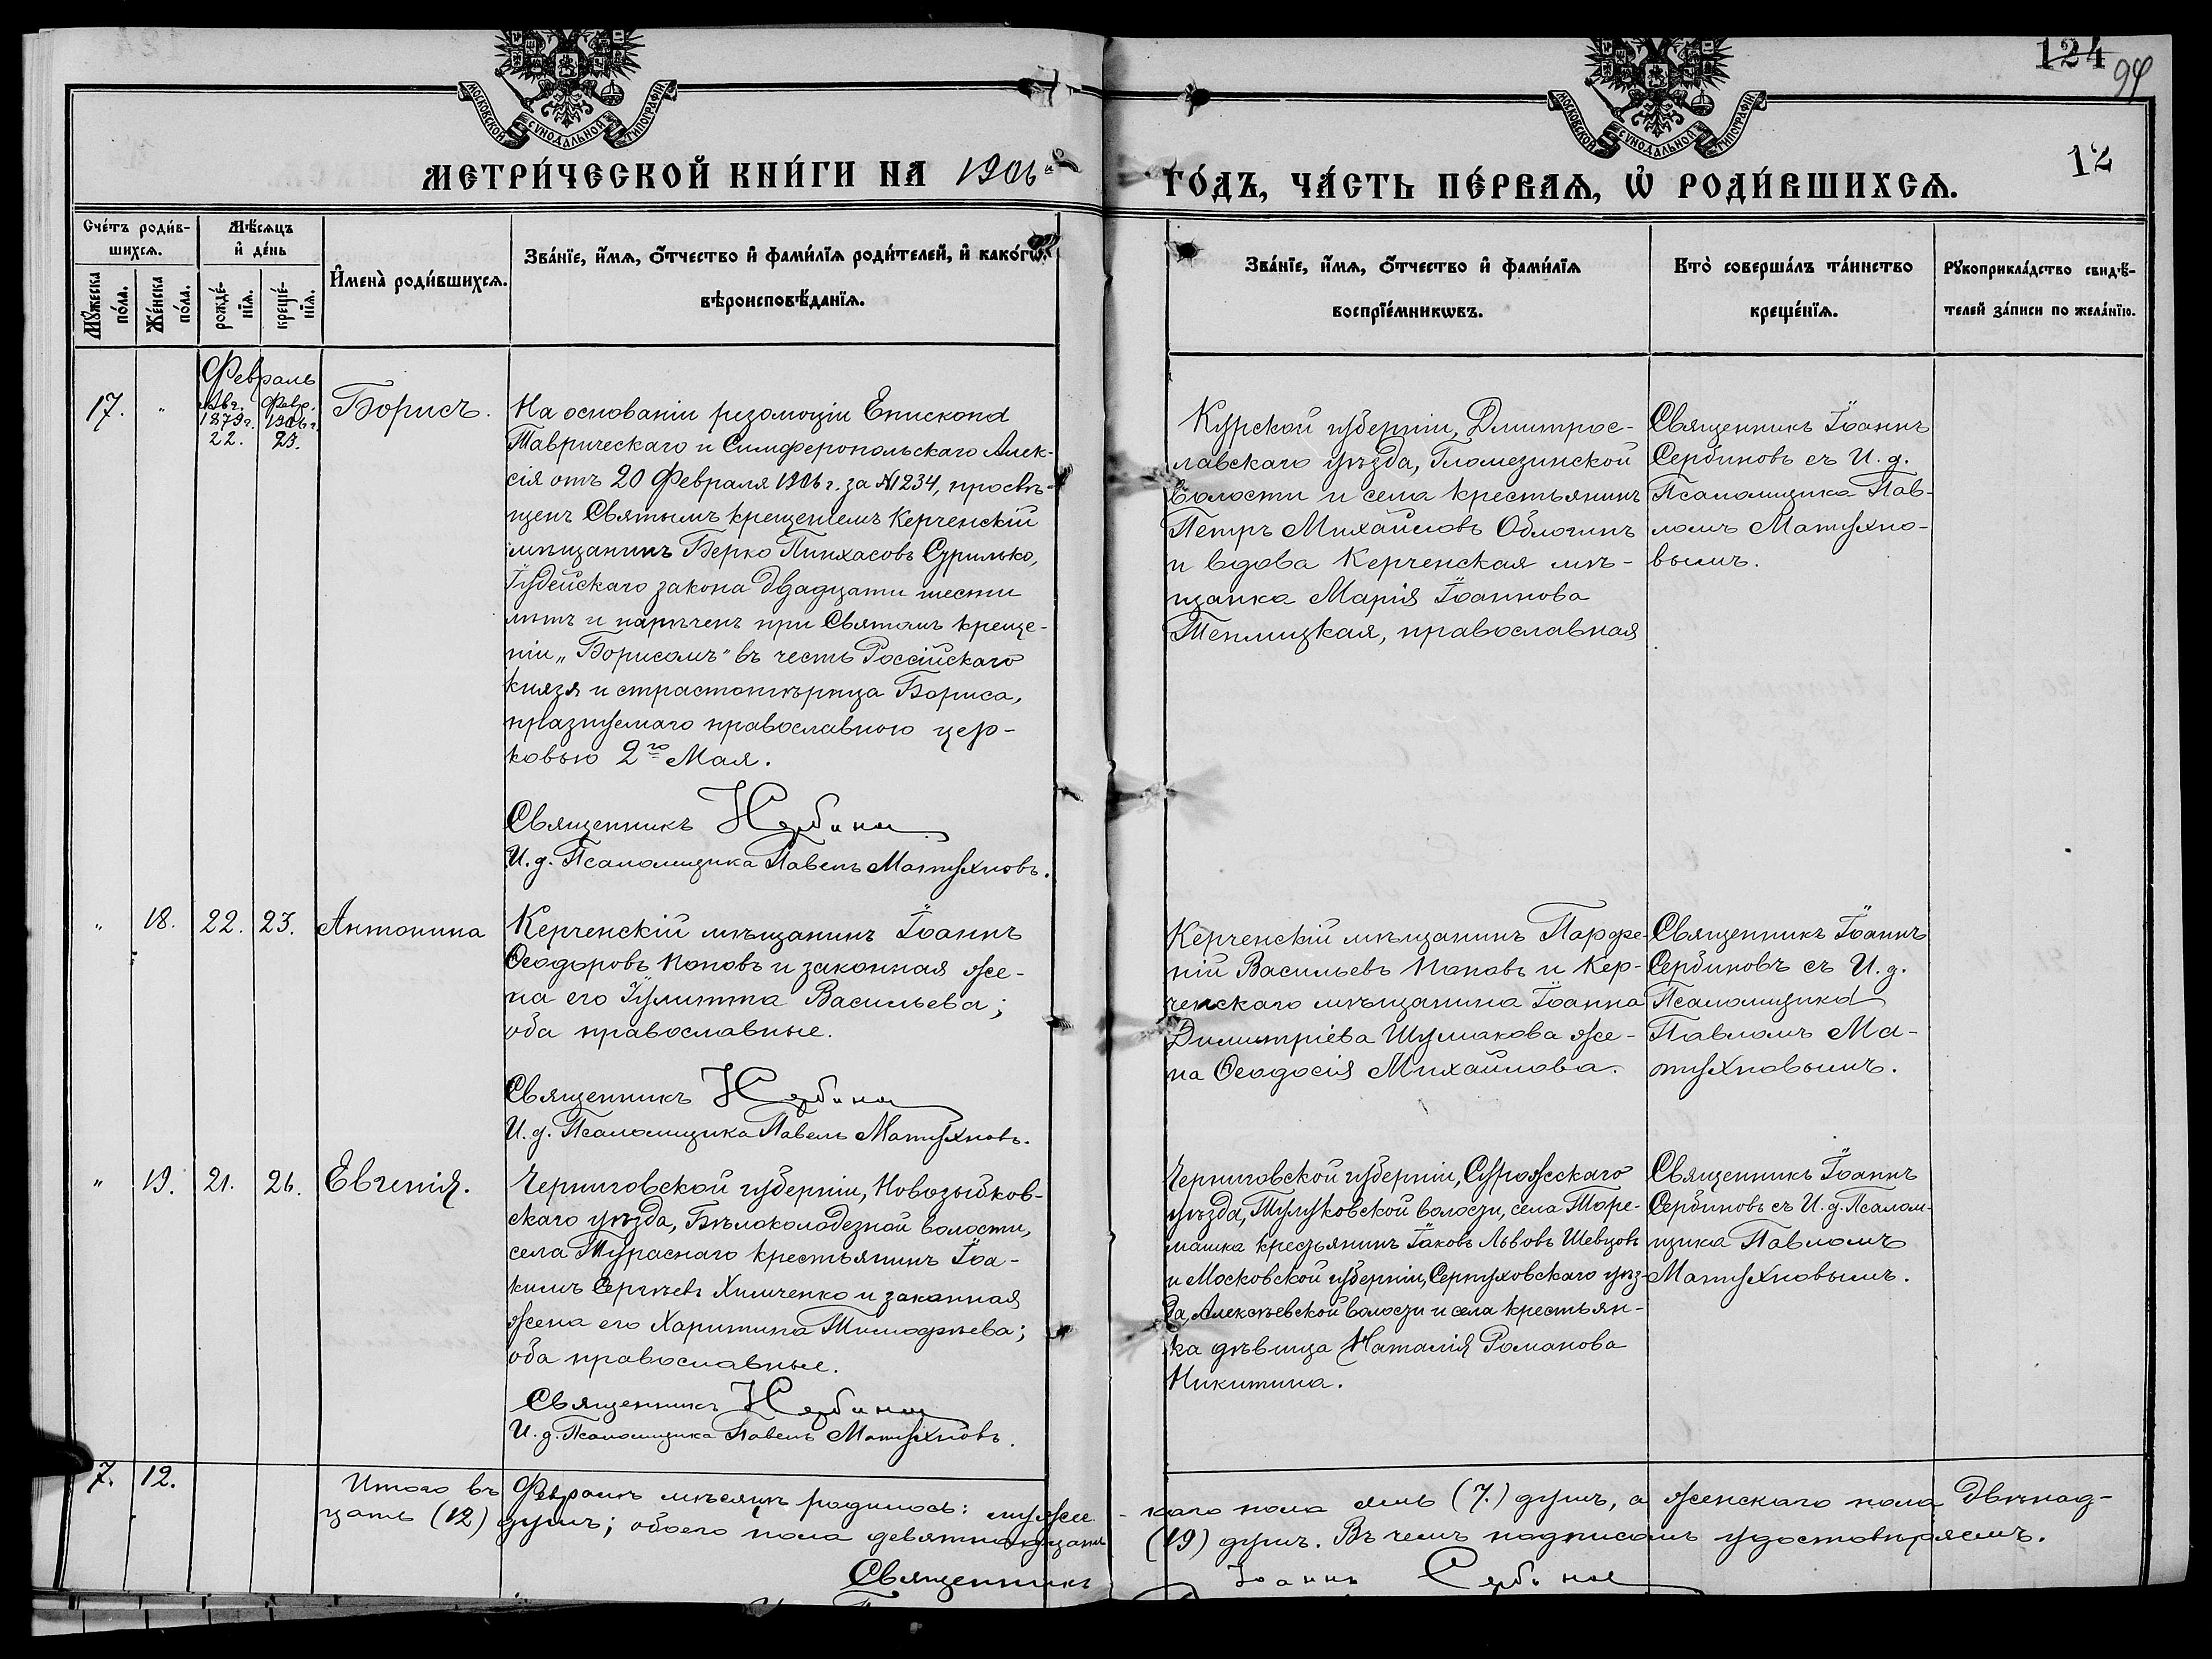 124
94
12
МОСКОВСКОЙ СѴНОДАЛЬНОЙ ТИПОГРАФІИ
МОСКОВСКОЙ СѴНОДАЛЬНОЙ ТИПОГРАФІИ
МЕТРИ́ЧЕСКОЙ КНИ́ГИ НА 1906й
ГО́ДЪ, ЧА́СТЬ ПЕ́РВАѦ, Ѡ҆ РОДИ́ВШИХСѦ.
Сче́тъ роди́в-
шихсѧ.
Мѣ́сѧцъ
и҆ де́нь
Мꙋ́жеска
по́ла.
Же́нска
по́ла.
рожде́-
нїѧ.
креще́-
нїѧ.
И҆мена̀ роди́вшихсѧ.
Зва́нїе, и҆́мѧ, ѻ҆́тчество и҆ фами́лїѧ роди́телей, и҆ како́гѡ
вѣроисповѣ́данїѧ.
Зва́нїе, и҆́мѧ, ѻ҆́тчество и҆ фами́лїѧ
воспрїе́мникѡвъ.
Кто̀ соверша́лъ та́инство
креще́нїѧ.
Рꙋкоприкла́дство свидѣ́-
телей за́писи по жела́нїю.
Февраль
17. " Авг. 1879 г. 22. Февр. 1906 г. 23. Борисъ.
На основаніи резолюціи Епископа
Таврическаго и Симферопольскаго Алек-
сія отъ 20 Февраля 1906 г. за №1234, просвѣ-
щенъ Святымъ крещеніемъ Керченскій
мѣщанинъ Берко Пинхасовъ Сурилько,
Іудейскаго закона двадцати шести
лѣтъ и нареченъ при Святомъ креще-
ніи „Борисомъ" въ честь Россійскаго
князя и страстотерпца Бориса,
празнуемаго православною цер-
ковью 2го Мая.
Священникъ І Сербинов
И. д. Псаломщика Павелъ Матухновъ.
Курской губерніи, Дмитрос-
лавскаго уѣзда, Гломезинской
волости и села крестьянинъ
Петръ Михайловъ Облогинъ
и вдова Керченская мѣ-
щанка Марія Іоаннова
Теплицкая, православная
Священникъ Іоаннъ
Сербиновъ съ И. д.
Псаломщика Пав-
ломъ Матухно-
вымъ.
" 18. 22. 23. Антонина
Керченскій мѣщанинъ Іоаннъ
Ѳеодоровъ Поповъ и законная же-
на его Іулитта Васильева;
оба православные.
Священникъ І Сербинов
И. д. Псаломщика Павелъ Матухновъ.
Керченскій мѣщанинъ Парфе-
ній Васильевъ Поповъ и Кер-
ченскаго мѣщанина Іоанна
Димитріева Шумакова же-
на Ѳеодосія Михайлова.
Священникъ Іоаннъ
Сербиновъ съ И. д.
Псаломщика
Павломъ Ма-
тухновымъ.
" 19. 21. 26. Евгенія.
Черниговской губерніи, Новозыбков-
скаго уѣзда, Бѣлоколодезной волости,
села Тураснаго крестьянинъ Іоа-
кимъ Сергѣевъ Химченко и законная
жена его Харитина Тимофѣева;
оба православные.
Священникъ І Сербинов
И. д. Псаломщика Павелъ Матухновъ.
Черниговской губерніи, Суражскаго
уѣзда, волости, села
крестьянинъ Іаковъ Львовъ Шевцовъ
и Московской губерніи, Серпуховскаго уѣз-
да, Алексѣевской волости и села крестьян-
ка дѣвица Наталія Романова
Никитина.
Священникъ Іоаннъ
Сербиновъ съ И. д. Псалом-
щика Павломъ
Матухновымъ.
7. 12. Итого въ Февралѣ мѣсяцѣ родилось: мужес-
каго пола семь (7.) душъ, а женскаго пола двѣнад-
цать (12) душъ; обоего пола девятнадцать
(19) душъ. Въ чемъ подписомъ удостовѣряемъ.
Священникъ Іоаннъ Сербинов